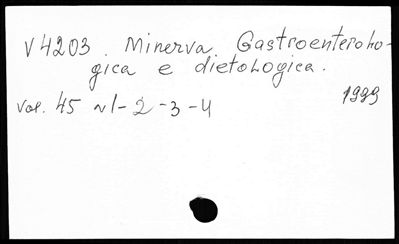 V4203. Minerva. Gastroenterolo-
gica e dietologica.
vol. 45 N1-2-3-4 1999